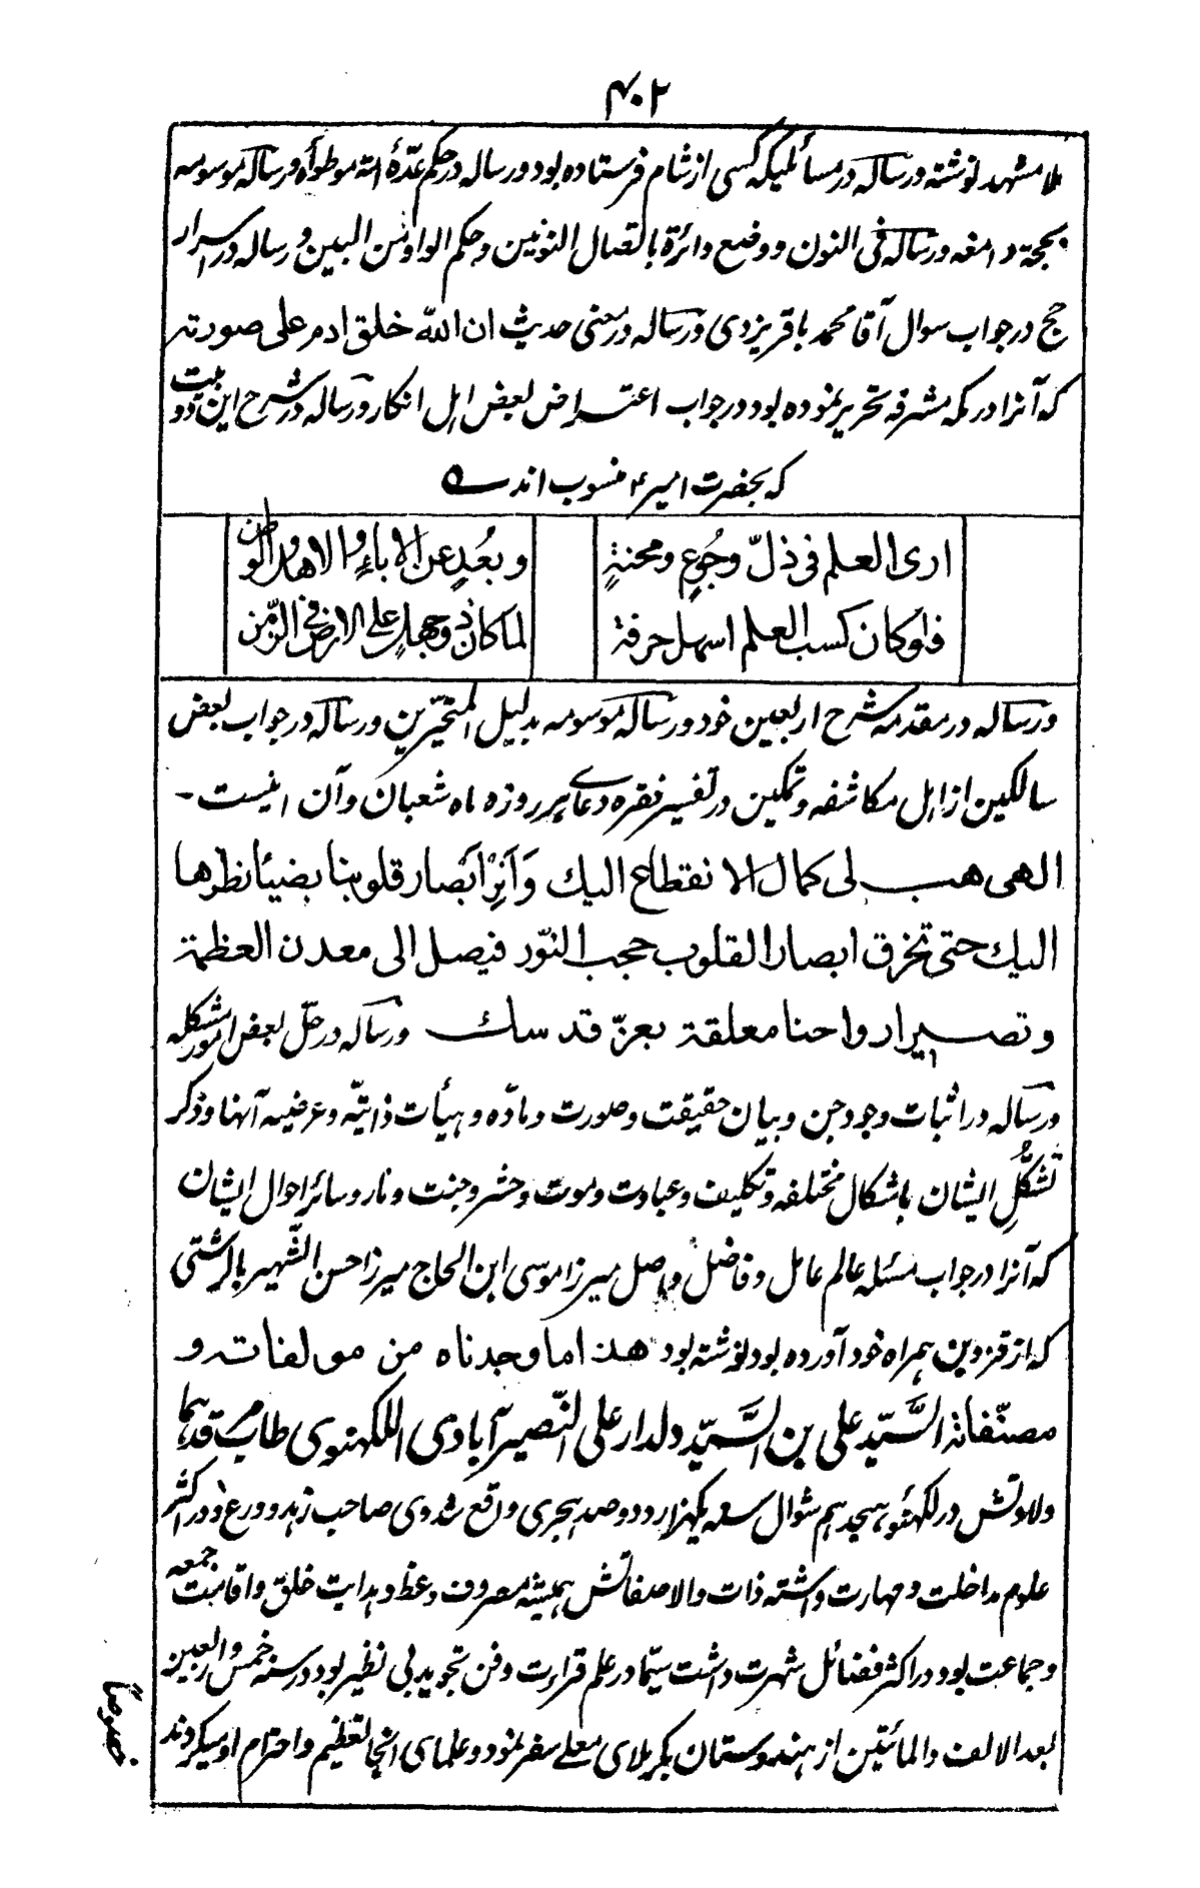 ۴۰۲
ملا مشهد نوشته و رساله در مسائلیکه کسی از شام فرستاده بود و رساله در حکم عدّهٔ امته موطوأه و رساله موسومه
بحجة دامغه و رساله فی النون و وضع دائرة بالتصال النونین و حکم الواو من البین و رساله در اسرار
حج در جواب سوال آقا محمد باقر یزدی و رساله در معنی حدیث ان اللّه خلق ادم علی صورته
که آنرا در مکه مشرفه تحریر نموده بود در جواب اعتراض بعض اهل انکار و رساله در شرح این دو بیت
که بحضرت امیر۴ منسوب اند ے
اری العلم فی ذلّ وجُوعٍ ومحنةٍ
وبُعُدٍ عن الاباءِ والاهل والوطن
فلو کان کسب العلم اسهل حرفة
لما کان ذو جهلٍ علی الارض فی الزّمن
و رساله در مقدمه شرح اربعین خود و رساله موسومه بدلیل المتحیّرین و رساله در جواب بعض
سالکین از اهل مکاشفه و تمکین در تفسیر فقره دعاے هر روزه ماه شعبان و آن اینست -
الهی هب لی کمال الانقطاع الیك وَآنِرْ اَبْصار قلوبنا بضیٓا نظرها
الیك حتی تخرق ابصار القلوب حجب النّور فیصل الی معدن العظمة
وتصیر ارواحنا معلقة بعزّ قدسك و رساله در حلّ بعض امور مشکله
و رساله در اثبات وجود جن و بیان حقیقت و صورت و مادّه و هیأت ذاتیّه و عرضیه آنها و ذکر
تشکّلِ ایشان باشکال مختلفه و تکلیف و عبادت و موت و حشر و جنت و نار و سائر احوال ایشان
که آنرا در جواب مسئله عالم عامل و فاضل واصل میرزا موسی ابن الحاج میرزا حسن الشّهیر بالرشتی
که از قزوین همراه خود آورده بود نوشته بود هذا ما وجدناه من مولفاته و
مصنّفاته السَّیّد علی بن السَّیّد دلدار علی النّصیرآبادی اللکهنوی طاب رمسهما
ولادتش در لکهنؤ هیجدهم شوال سنه یکهزار و دو صد هجری واقع شد وی صاحب زهد و ورع و در اکثر
علوم مداخلت و مهارت داشته ذات والا صفاتش همیشه مصروف وعظ و هدایت خلق و اقامت جمعه
و جماعت بود در اکثر فضائل شهرت داشت سیّما در علم قراءت و فن تجوید بی نظیر بود در سنه خمس و اربعین
بعد الالف والمائتین از هندوستان بکربلای معلے سفر نمود و علمای آنجا تعظیم و احترام او میکردند
خصوصاً